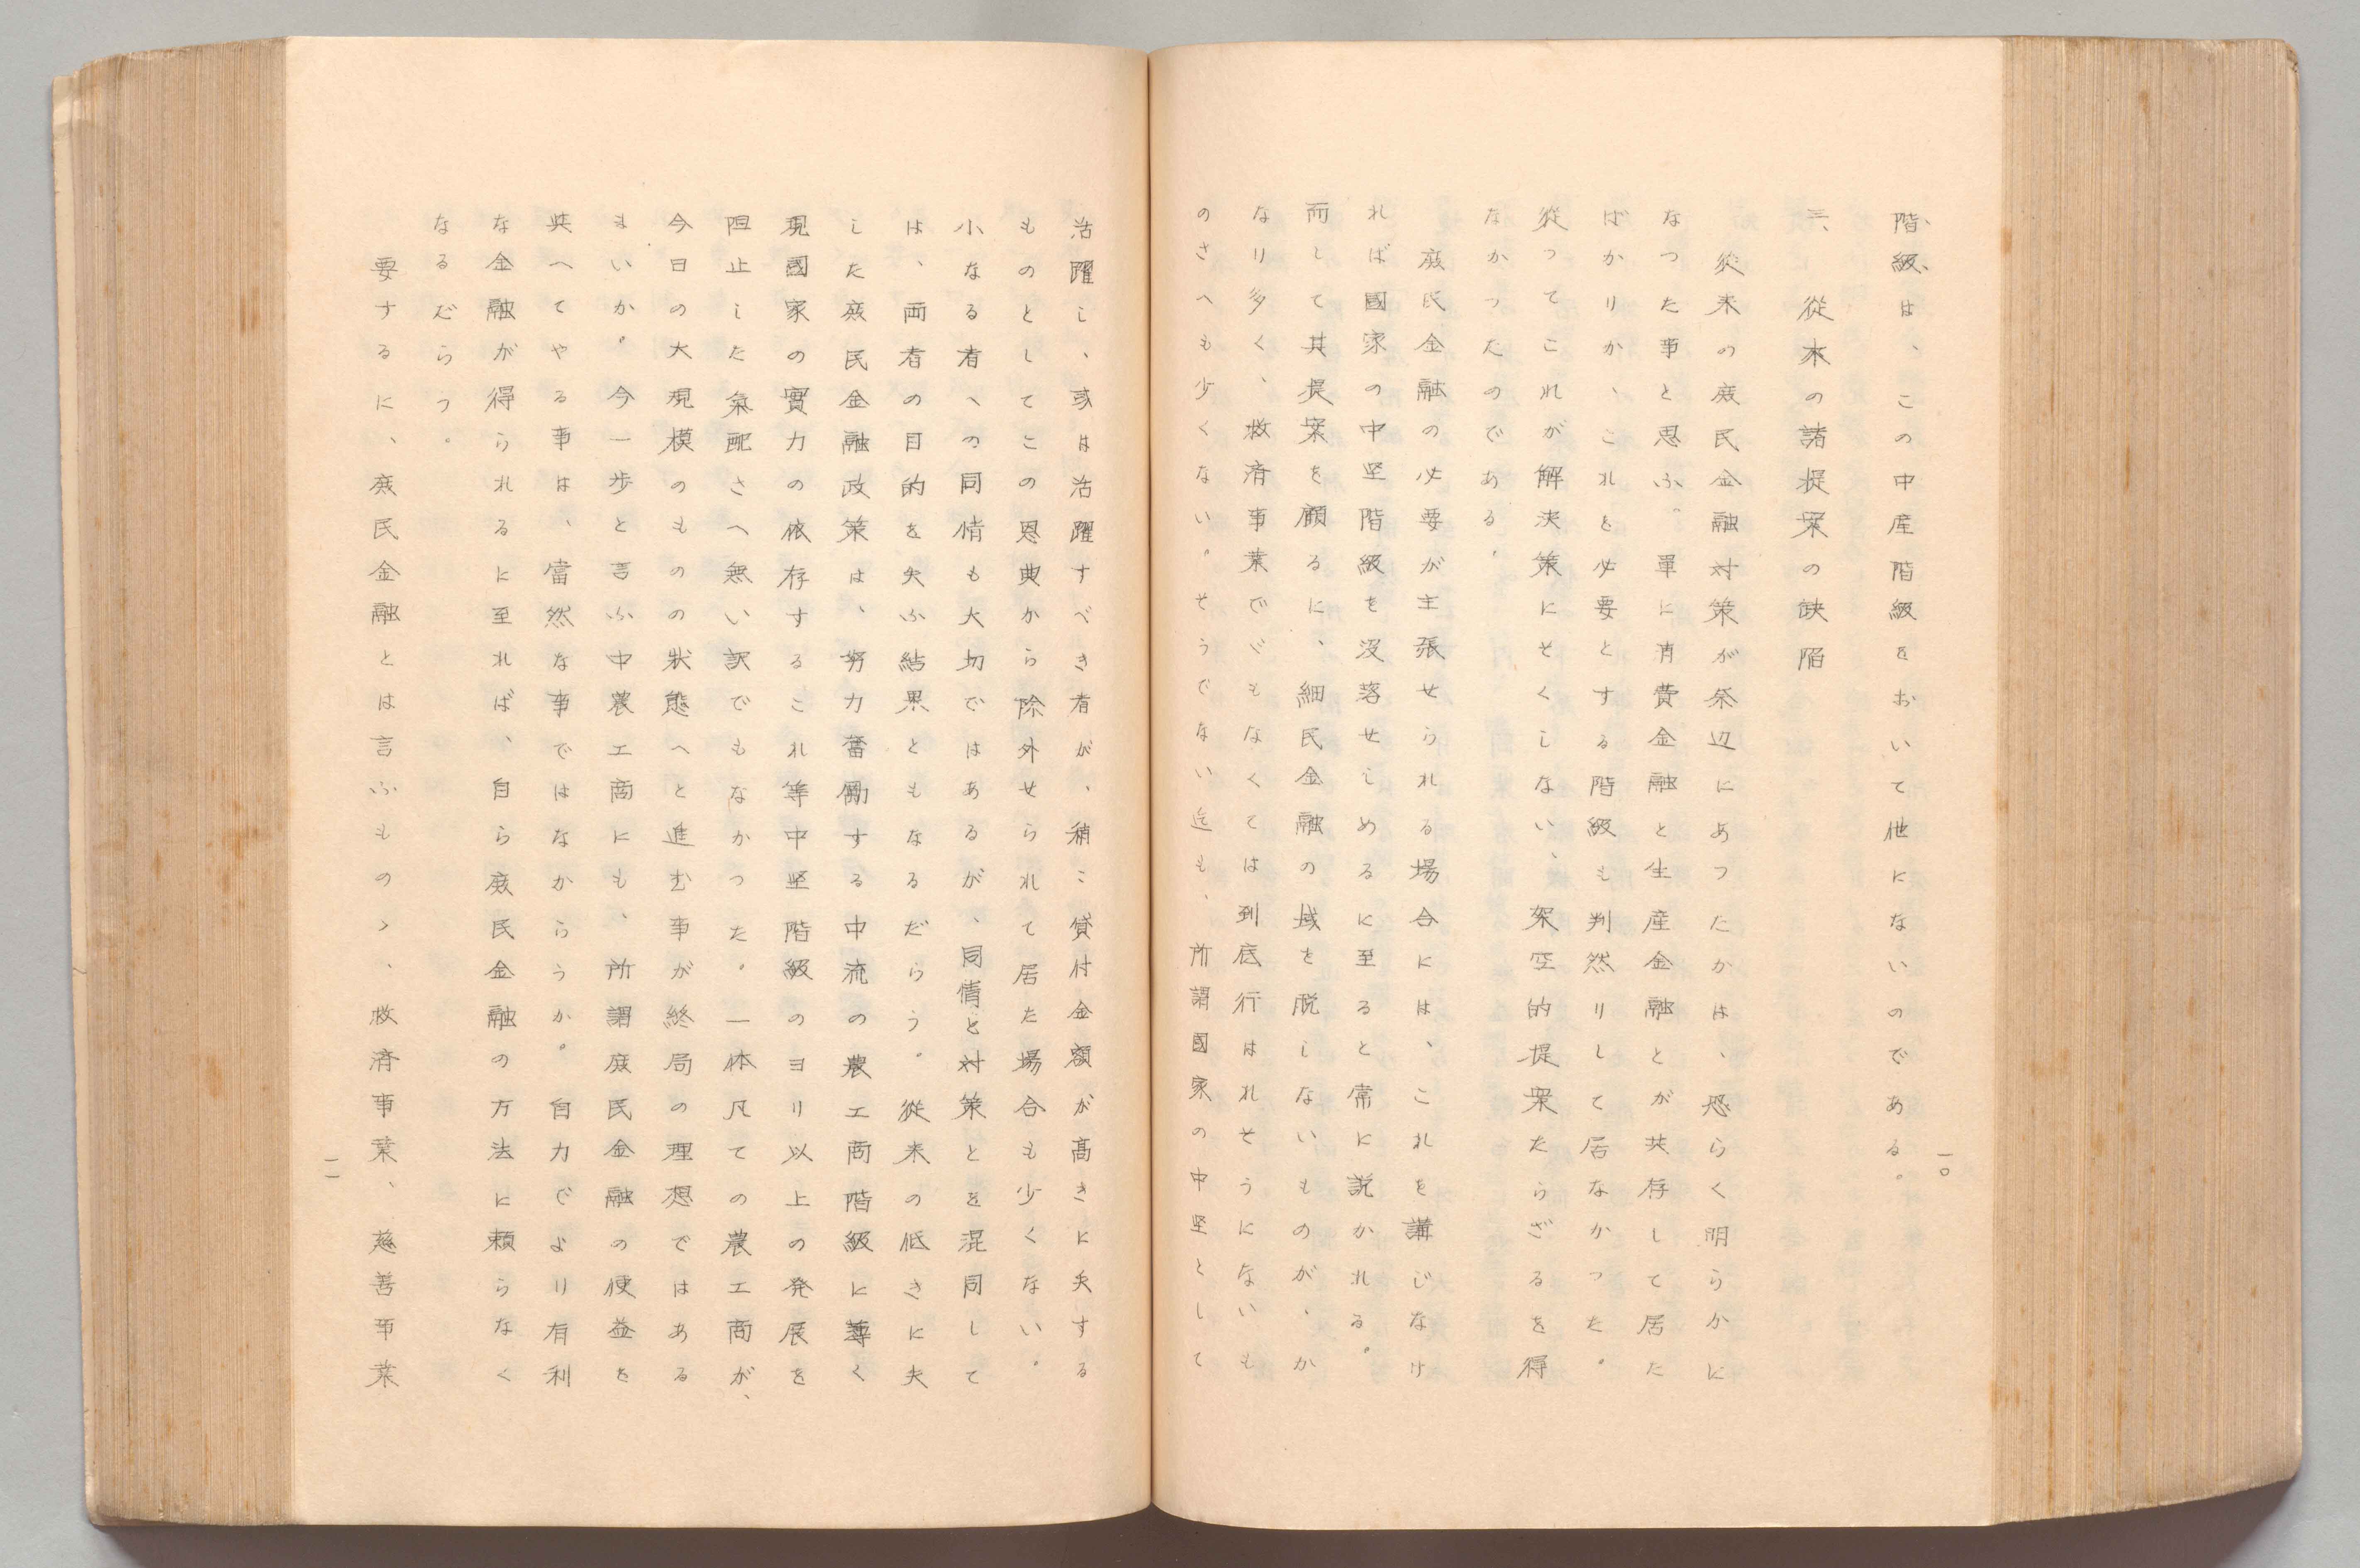 一〇
階級は、この中産階級をおいて他にないのである。
三、從来の諸提案の缺陥
從来の庶民金融対策が奈辺にあつたかは、恐らく明らかに
なつた事と思ふ。單に消費金融と生産金融とが共存して居た
ばかりか、これを必要とする階級も判然りして居なかつた。
從つてこれが解決策にそくしない、架空的提案たらざるを得
なかつたのである。
庶民金融の必要が主張せられる場合には、これを講じなけ
れば國家の中坚階級を没落せしめるに至ると常に説かれる。
而して其提案を顧るに、細民金融の域を脱しないものが、か
なり多く、救済事業でゞもなくては到底行はれそうにないも
のさへも少くない。そうでない迄も、所謂國家の中坚として
活躍し、或は活躍すべき者が、稍〻貸付金額が高きに失する
ものとしてこの恩典から除外せられて居た場合も少くない。
小なる者への同情も大切ではあるが、同情と対策とを混同して
は、両者の目的を失ふ結果ともなるだらう。從来の低きに失
した庶民金融政策は、努力奮働する中流の農工商階級に導く
現國家の實力の依存するこれ等中坚階級のヨリ以上の発展を
阻止した氣配さへ無い訳でもなかつた。一体凡ての農工商が、
今日の大規模のものの状態へと進む事が終局の理想ではある
まいか。今一歩と言ふ中農工商にも、所謂庶民金融の便益を
與へてやる事は、當然な事ではなからうか。自力でより有利
な金融が得られるに至れば、自ら庶民金融の方法に頼らなく
なるだらう。
要するに、庶民金融とは言ふものゝ、救済事業、慈善事業
一一